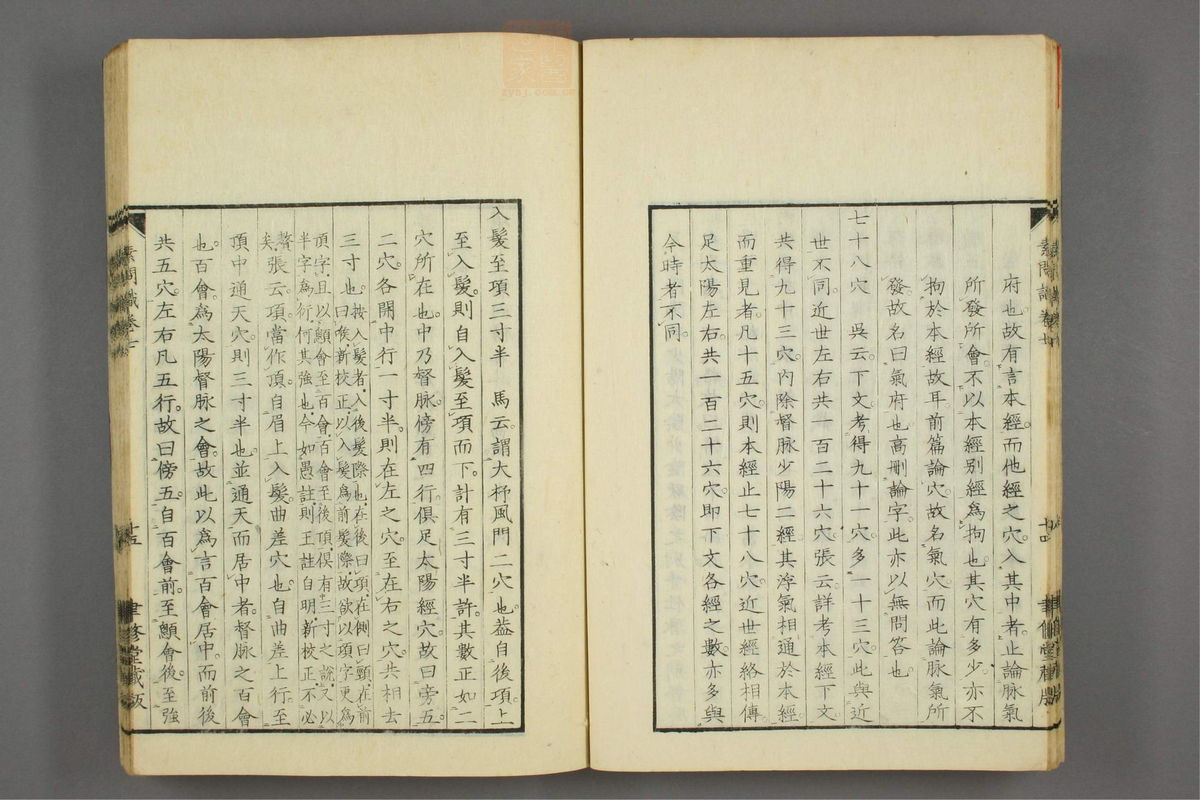 府也故有言本經而他經之穴入其中者止論脉氣
所發所會不以本經別經爲拘也其穴有多少亦不
拘於本經故耳前篇論穴故名氣穴而此論脉氣所
發故名曰氣府也高刪論字此亦以無問答也
七十八穴 吳云下文考得九十一穴多一十三穴此與近
世不同近世左右共一百二十六穴張云詳考本經下文
共得九十三穴內除督脉少陽二經其浮氣相通於本經
而重見者凡十五穴則本經止七十八穴近世經絡相傳
足太陽左右共一百二十六穴即下文各經之數亦多與
今時者不同
素問識卷七
十四
入髮至項三寸半 馬云謂大杼風門二穴也蓋自後項上
至入髮則自入髮至項而下計有三寸半許其數正如二
穴所在也中乃督脉傍有四行俱足太陽經穴故曰旁五
二穴各開中行一寸半則在左之穴至在右之穴共相去
三寸也按入髮者入後髮際也在後曰項在側曰頸在前
曰喉新校正以入髮爲前髮際故欲以項字更爲
頂字且以顖會至百會百會至後頂俟有三寸之說又以
半字爲衍何其強也今如愚註則王註自明新校正不必
贅矣張云項當作頂自眉上入髮曲差穴也自曲差上行至
頂中通天穴則三寸半也並通天而居中者督脉之百會
也百會爲太陽督脉之會故此以爲言百會居中而前後
共五穴左右凡五行故曰傍五自百會前至顖會後至強
素問識卷七
十五
聿修堂藏版